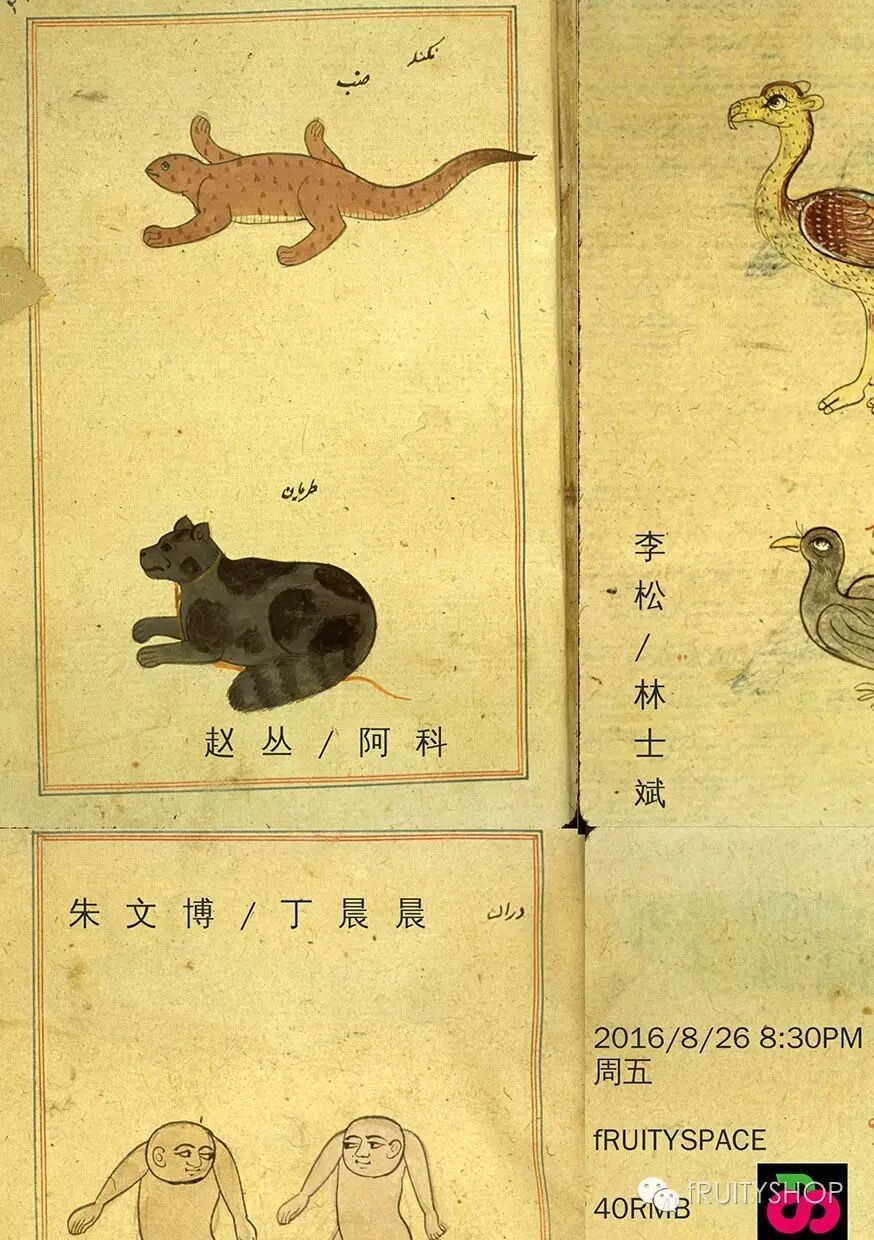 ضب
赵丛/阿科
李松/林士斌
朱文博/丁晨晨
2016/8/26 8:30PM
周五
fRUITYSPACE
40RMB
fRUITYSHOP